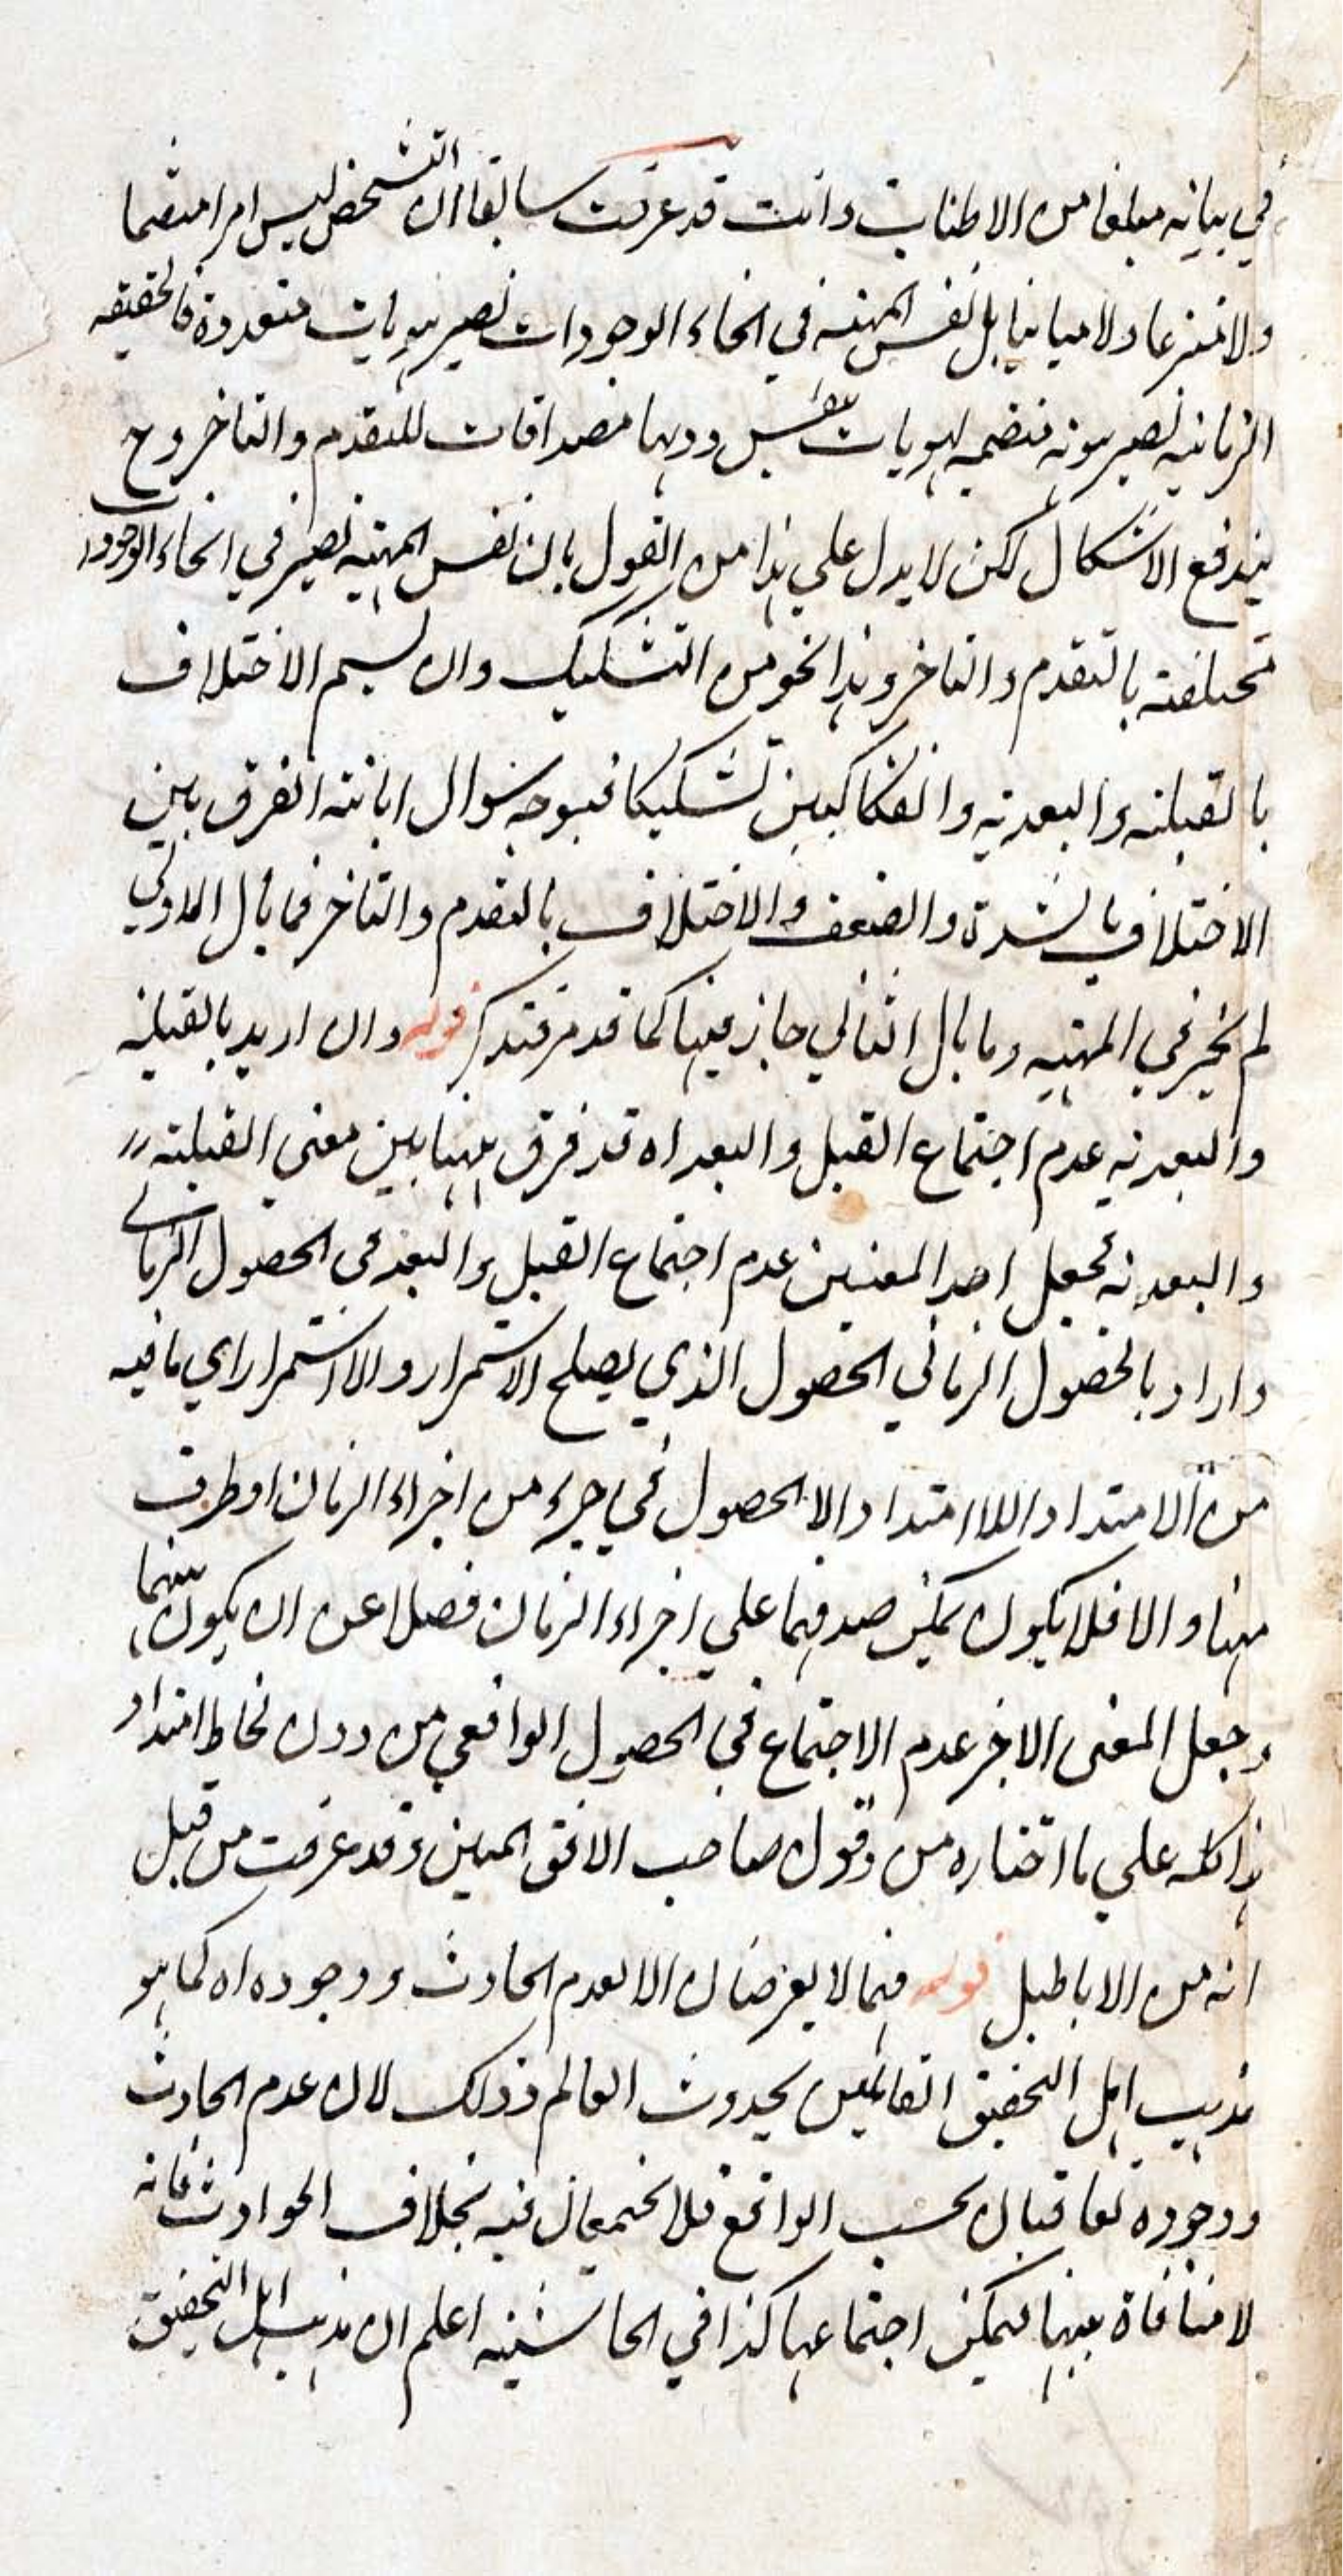 في بيانه مبلغا من الاطناب وانت قد عرفت سابقا ان التشخص ليس امرا منضما
ولا منتزعا ولا مباينا بل نفس المهية في انحاء الوجودات تصير هويات متعددة فالحقيقة
الزمانية تصير هوية منضمه لهويات بنفس ذوبها مصداقات للتقدم والتاخر وح
يندفع الاشكال لكن لا يدل على هذا من القول بان نفس المهية تصير في انحاء الوجود
مختلفة بالتقدم والتاخر وهذا نحو من التشكيك وان لم يسم الاختلاف
بالقبلية والبعدية والفكاكيين تشكيكا فيتوجه سؤال ابانة الفرق بين
الاختلاف بالشدة والضعف والاختلاف بالتقدم والتاخر فما بال الاولي
لم يجز في المهية وما بال الثاني جاز فيها كما قد مر فتذكر قوله وان اريد بالقبلية
والبعدية عدم اجتماع القبل والبعد اه قد فرق ههنا بين معنى القبلية
والبعدية فجعل احد المعنيين عدم اجتماع القبل والبعد في الحصول الزماني
واراد بالحصول الزماني الحصول الذي يصلح الاستمرار واللااستمرار اي ما فيه
من الامتداد واللاامتداد والا الحصول في جزء من اجزاء الزمان او طرف
منها والا فلا يكون يمكن صدقهما على اجزاء الزمان فضلا عن ان يكون بينهما
وجعل المعنى الاخر عدم الاجتماع في الحصول الواقعي من دون لحاظ امتداد
هذا كله على ما اختاره من وقول صاحب الافق المبين وقد عرفت من قبل
انه من الاباطيل قوله فهما لا يعرضان الا لعدم الحادث ووجوده اه كما هو
مذهب اهل التحقيق القائلين بحدوث العالم وذلك لان عدم الحادث
ووجوده تعاقبان بحسب الواقع فلا يجتمعان فيه بخلاف الحوادث فانه
لا منافاة بينها فيمكن اجتماعها كذا في الحاشية اعلم ان مذهب اهل التحقيق